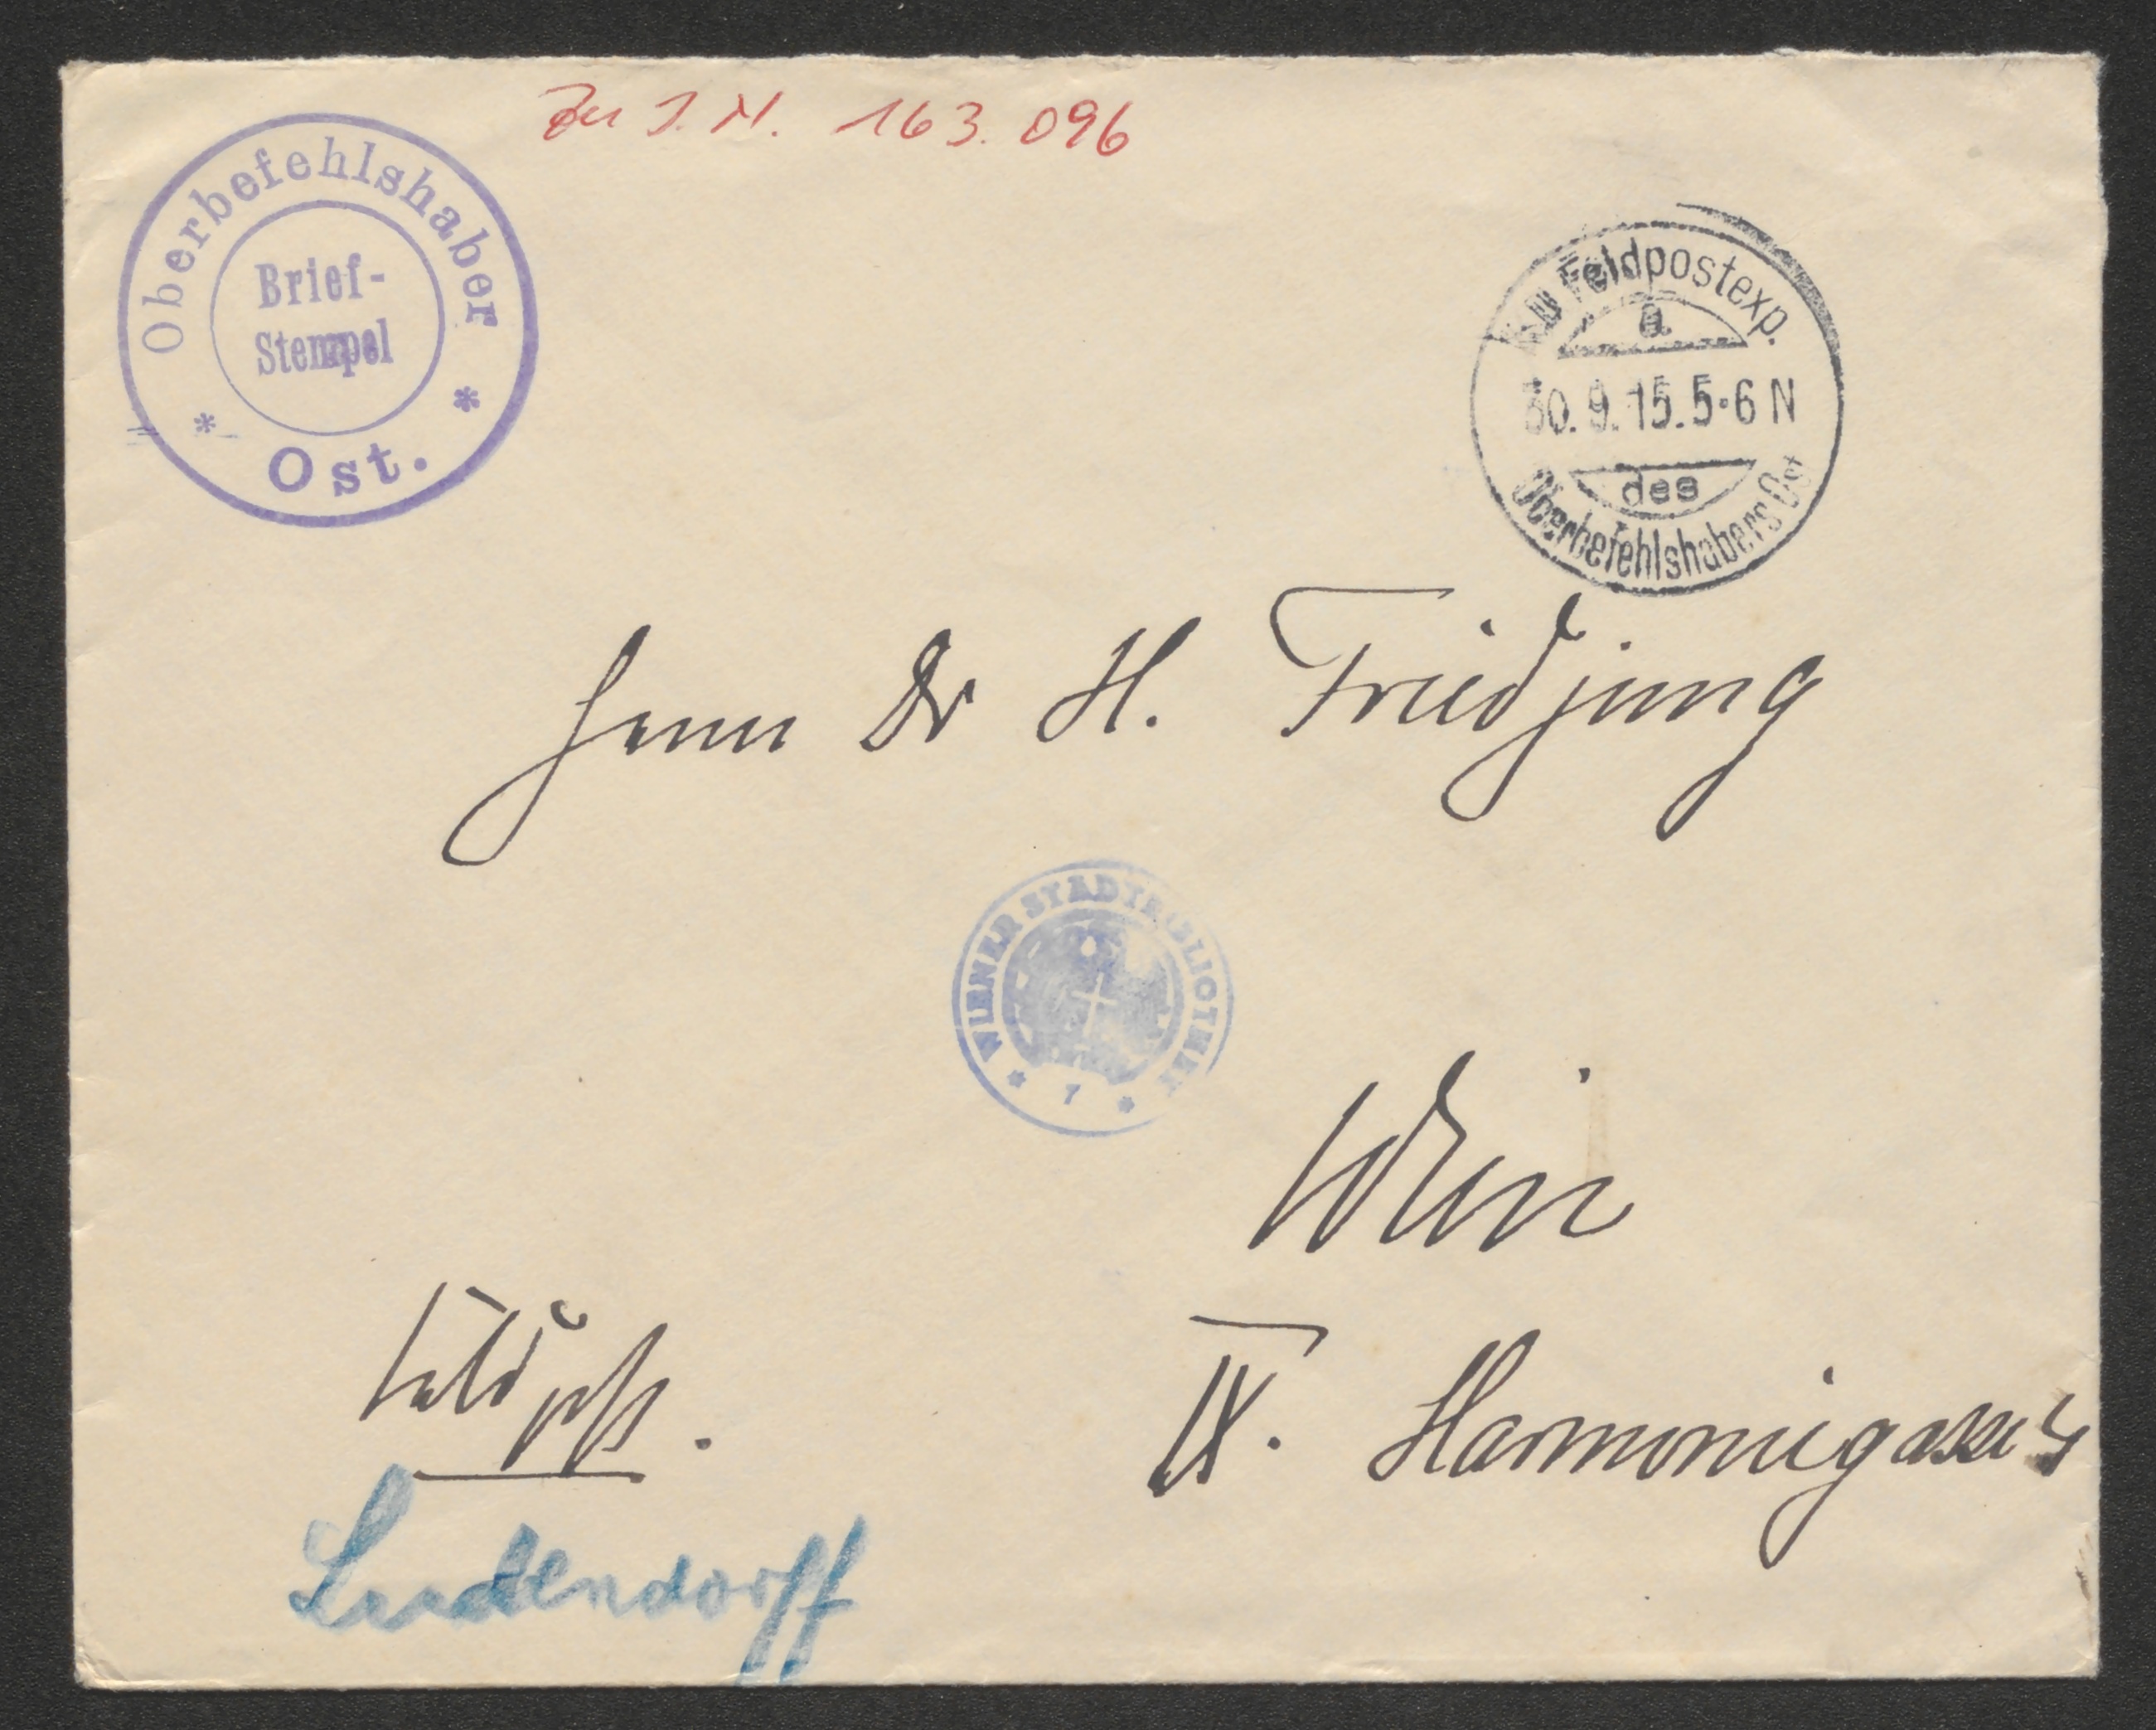 Zu I. N. 163.096
Oberbefehlshaber
Brief-
Stempel
* Ost. *
Feldpostexp.
a.
30.9.15.5-6 N
des
Oberbefehlshabers Ost
Herrn Dr H. Friedjung
WIENER STADTBIBLIOTHEK
* 7 *
Wien
Feldpost.
IX. Harmoniegasse
Ludendorff